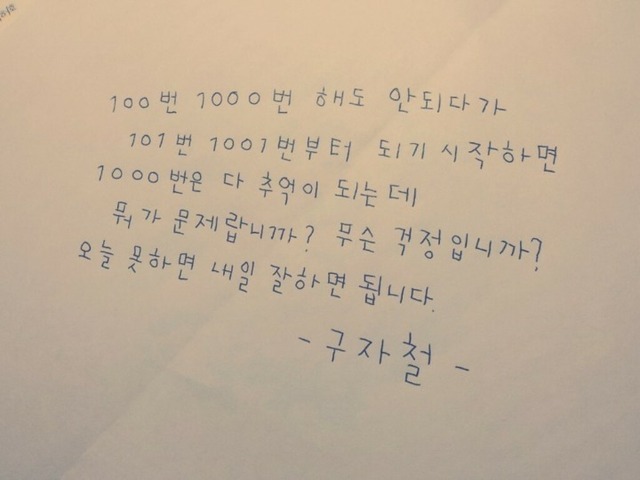 100번 1000번 해도 안되다가
101번 1001번부터 되기 시작하면
1000번은 다 추억이 되는데
뭐가 문제랍니까? 무슨 걱정입니까?
오늘 못하면 내일 잘하면 됩니다.
- 구자철 -